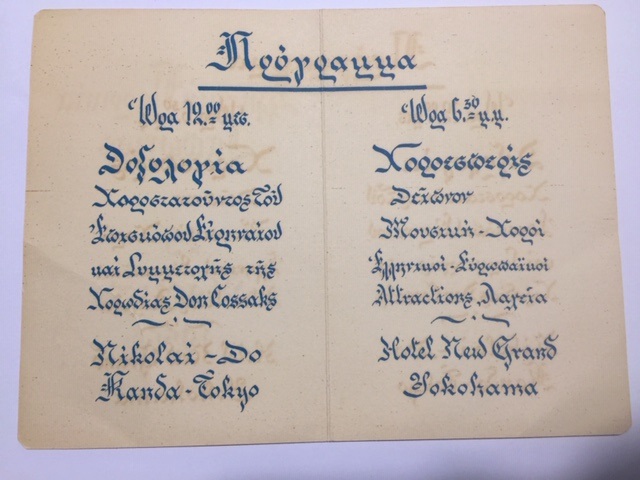 Πρόγραμμα
Ὥρα 12.00 μεσ.
Δοξολογία
Χοροστατοῦντος τοῦ
Ἐπισκόπου Εἰρηναίου
καὶ Συμμετοχῆς τῆς
Χορωδίας Don Cossaks
Nikolai-Do
Kanda-Tokyo
Ὥρα 6.30 μ.μ.
Χοροεσπερὶς
Δεῖπνον
Μουσική-Χοροί
Ἑλληνικοί-Εὐρωπαϊκοί
Attractions, Λαχεῖα
Hotel New Grand
Yokohama